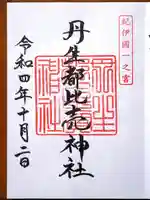 紀伊國一之宮
丹生都比売神社
令和四年十月二日